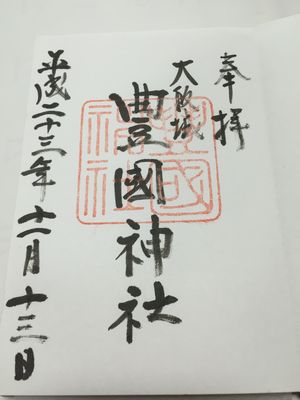 奉拝
大阪城
豊國神社
平成二十三年十一月十三日